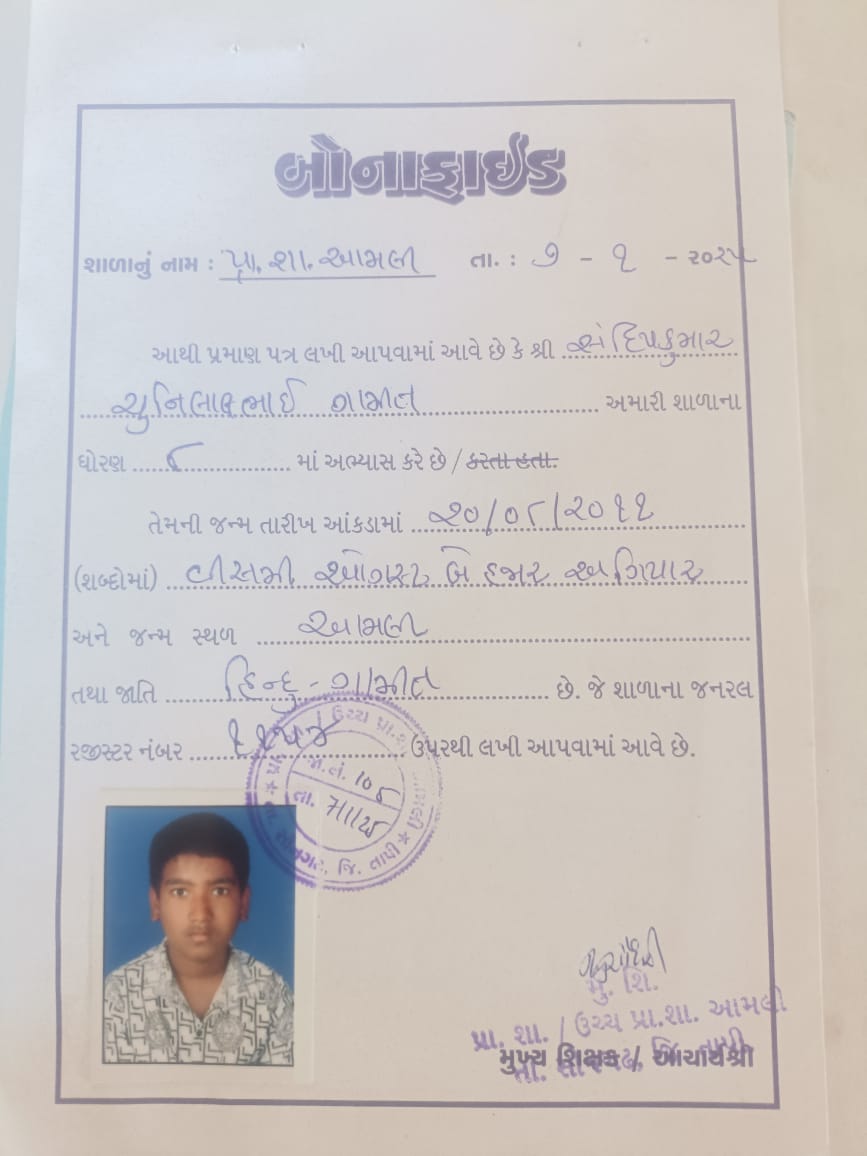 બોનાફાઈડ
શાળાનું નામ : પ્રા. શા. આમલી તા. : ૭ - ૧ - ૨૦૨૫
આથી પ્રમાણ પત્ર લખી આપવામાં આવે છે કે શ્રી સંદિપકુમાર
ચુનિલાલભાઈ ગામીત અમારી શાળાના
ધોરણ ૮ માં અભ્યાસ કરે છે / કરતા હતા.
તેમની જન્મ તારીખ આંકડામાં ૨૦/૦૮/૨૦૧૧
(શબ્દોમાં) વીસમી ઓગસ્ટ બે હજાર અગિયાર
અને જન્મ સ્થળ આમલી
તથા જાતિ હિન્દુ - ગામીત છે. જે શાળાના જનરલ
રજીસ્ટર નંબર ૧૧૫૪ ઉપરથી લખી આપવામાં આવે છે.
પ્રા. / ઉચ્ચ પ્રા.
જા. નં. ૧૦૮
તા. 7/1/25
જિ. તાપી
મુ. શિ.
પ્રા. શા. / ઉચ્ચ પ્રા.શા. આમલી
મુખ્ય શિક્ષક / આચાર્યશ્રી